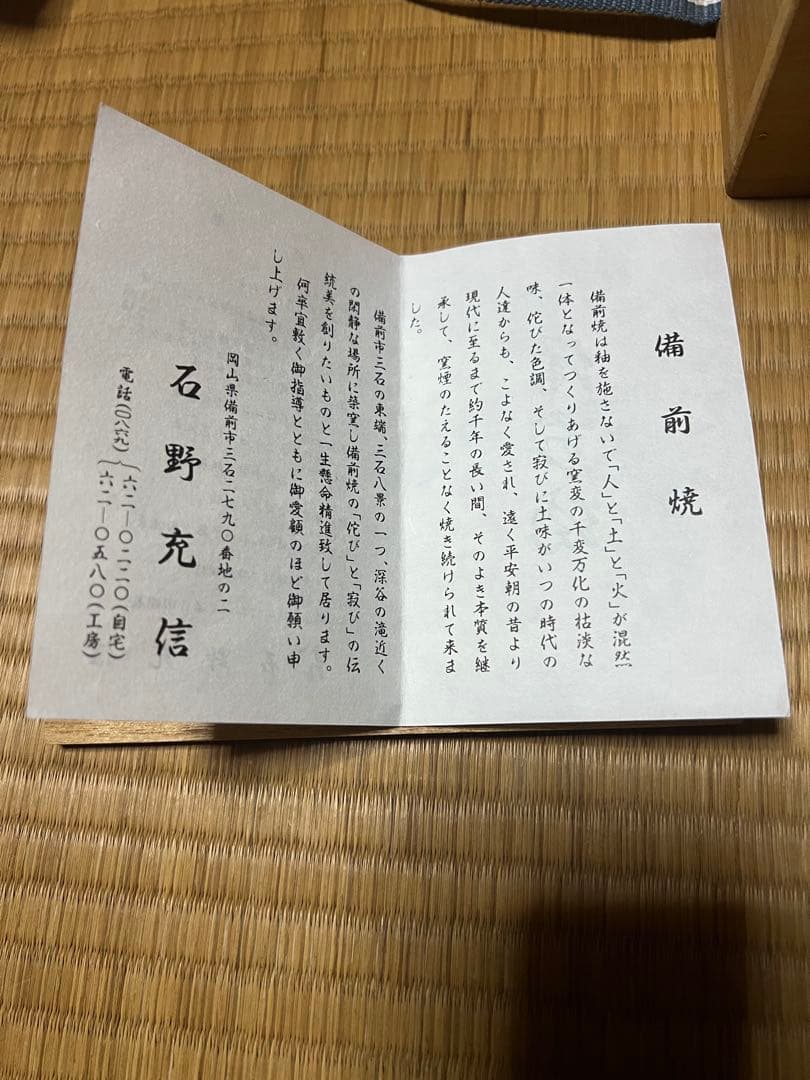 備前焼
備前焼は釉を施さないで「人」と「土」と「火」が混然
一体となってつくりあげる窯変の千変万化の枯淡な
味、侘びた色調、そして寂びに土味がいつの時代の
人達からも、こよなく愛され、遠く平安朝の昔より
現代に至るまで約千年の長い間、そのよき本質を継
承して、窯煙のたえることなく焼き続けられて来ま
した。
備前市三石の東端、三石八景の一つ、深谷の滝近く
の閑静な場所に築窯し備前焼の「侘び」と「寂び」の伝
統美を創りたいものと一生懸命精進致して居ります。
何卒宜敷く御指導とともに御愛顧のほど御願い申
し上げます。
岡山県備前市三石二七九〇番地の二
石野充信
電話(〇八六九)
六二―〇二二〇(自宅)
六二―〇五八〇(工房)